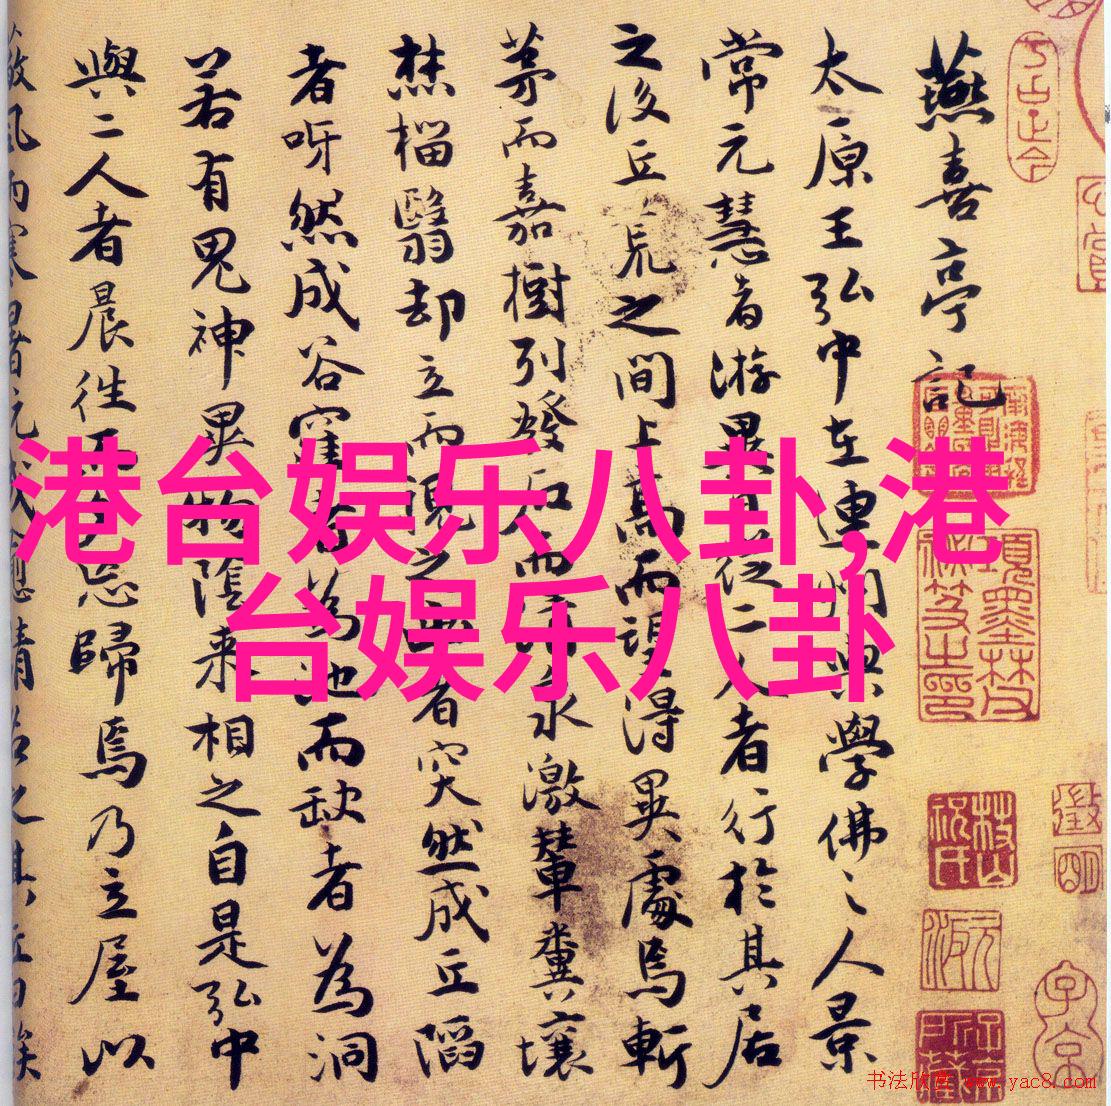 燕喜亭記
太原王弘中在連州與學佛之人景
常元慧者游異日從二人者行於其居
之後丘荒之間上高而望得異處焉斬
茅而嘉樹列發石而清泉激輦糞壤
燔椔翳却立而視之出者突然成丘陷
者呀然成谷窪者為池而缺者為洞
若有鬼神異物陰來相之自是弘中
與二人者晨往而夕忘歸焉乃立屋以
港台娱乐八卦,港
台娱乐八卦
书法欣赏 www.yac8.com